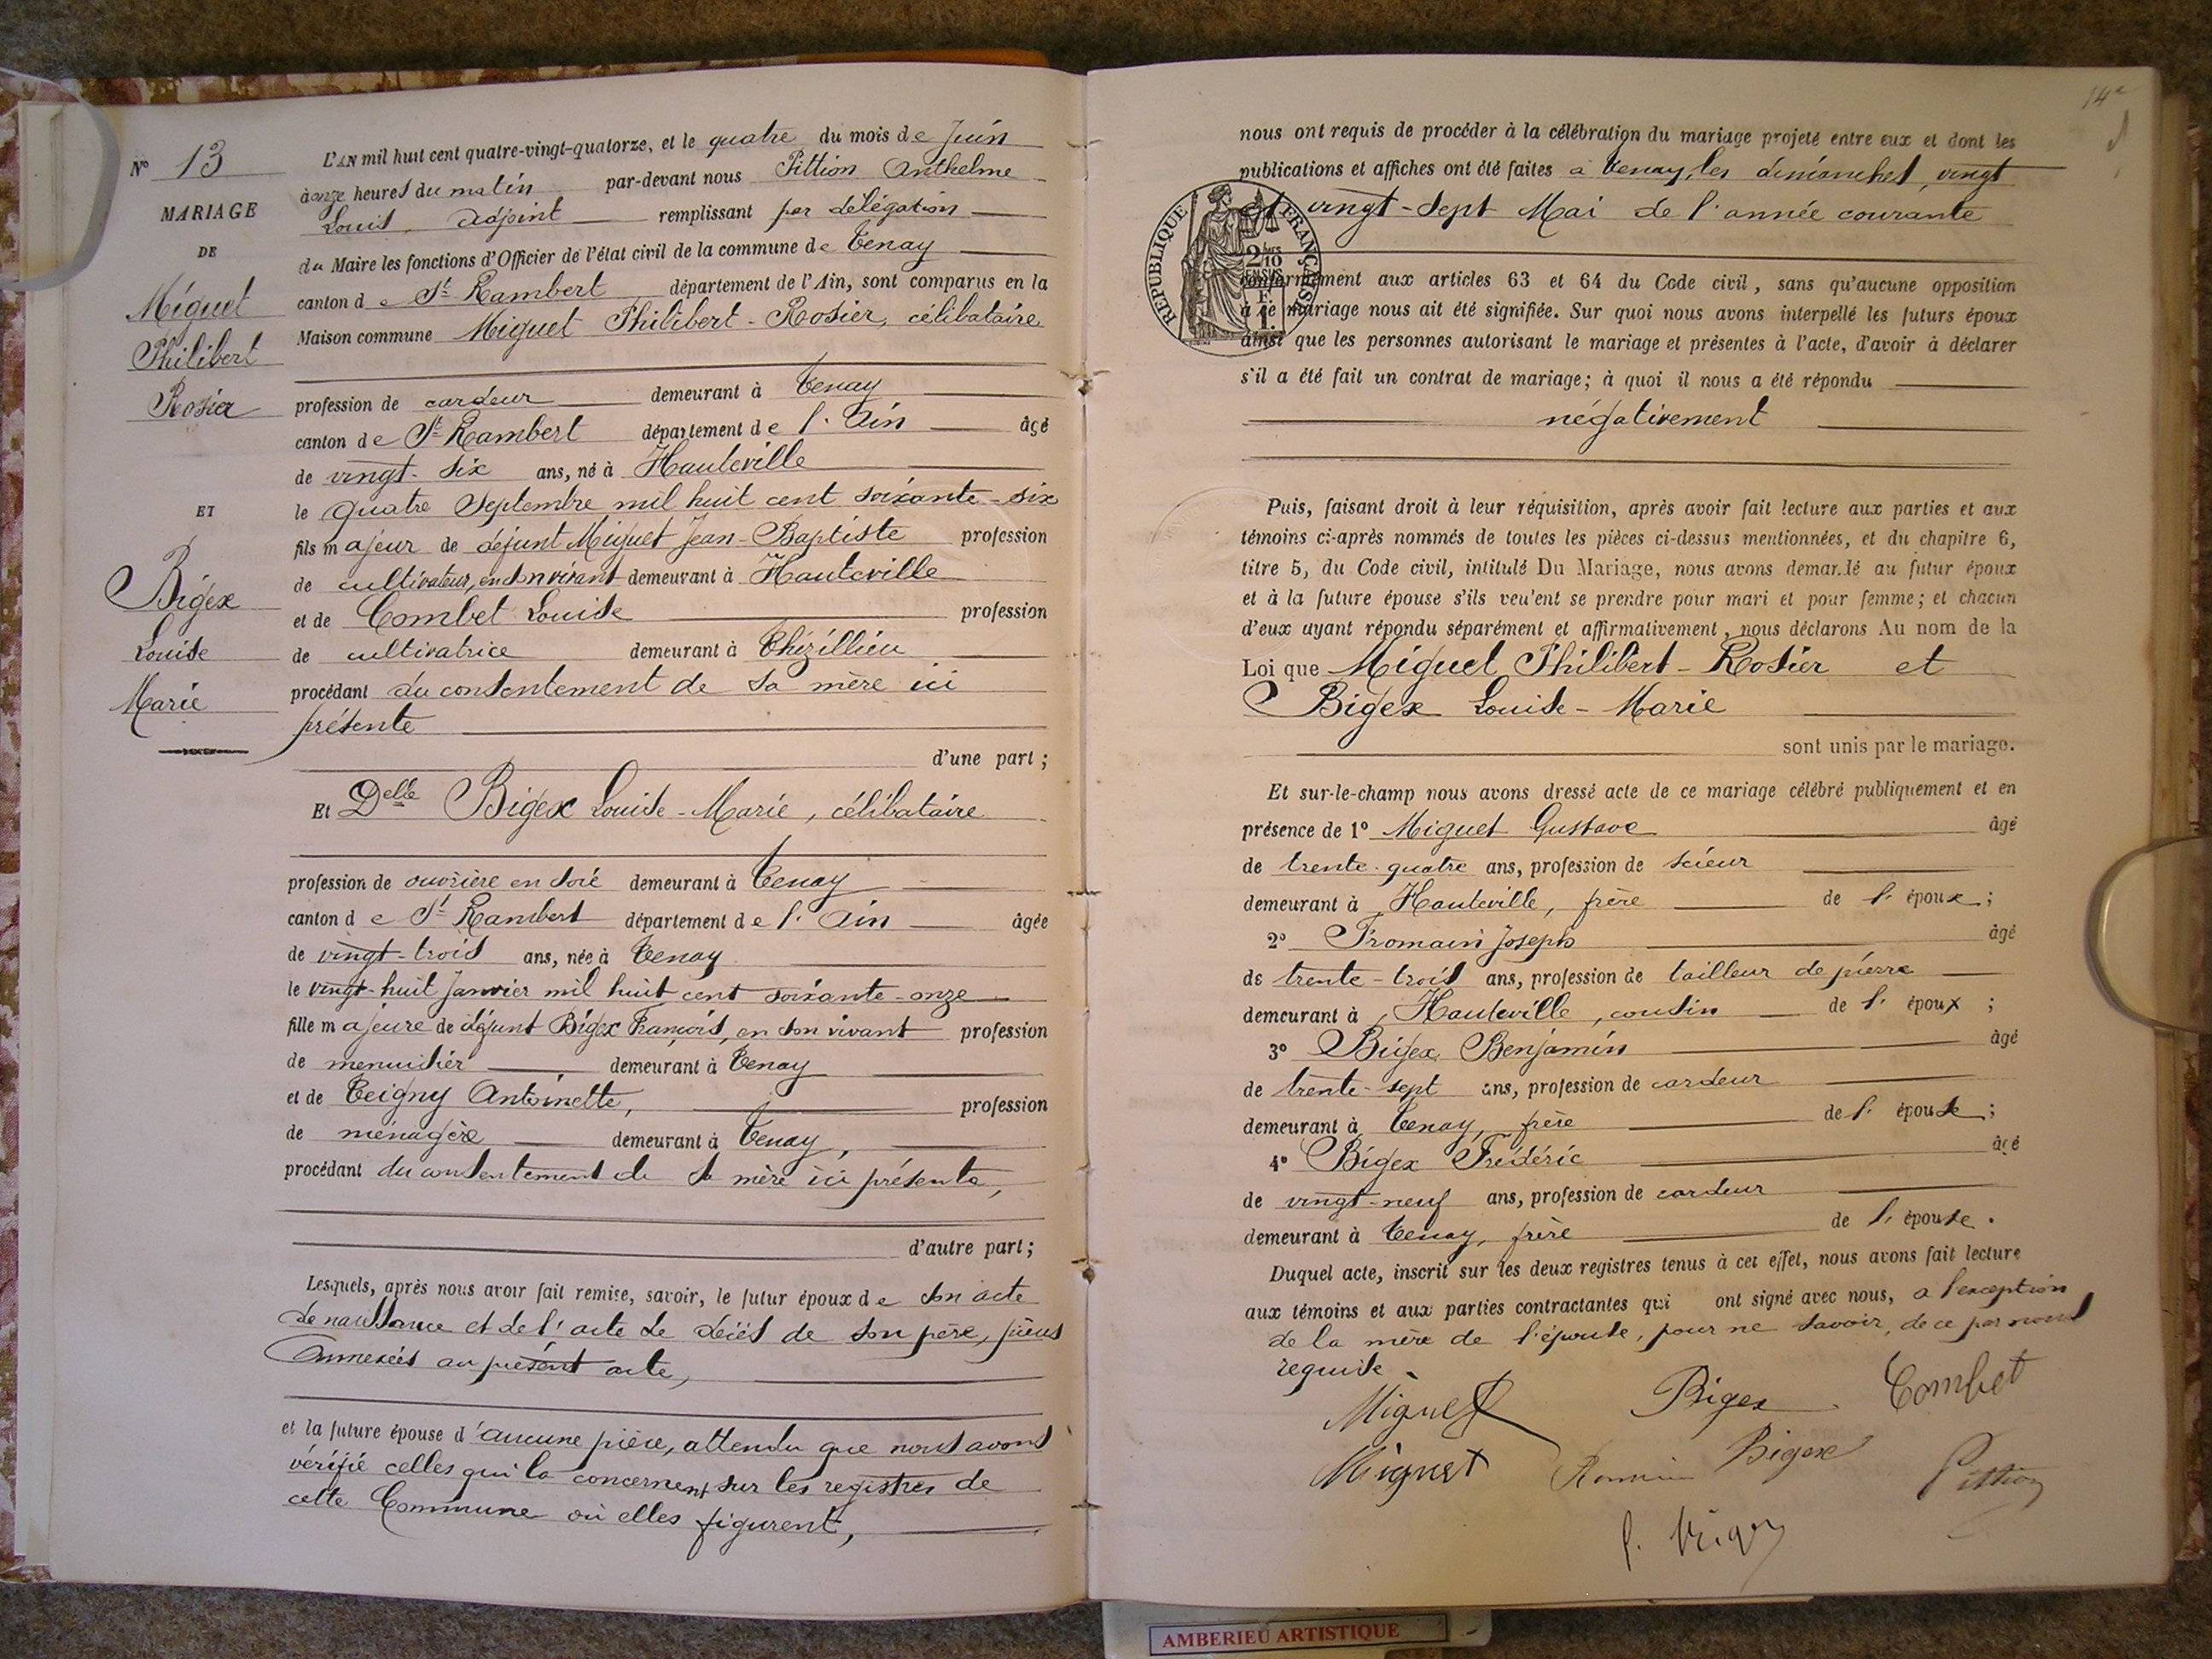 N° 13
MARIAGE
DE
Miguet
Philibert
Rosier
ET
Bigex
Louise
Marie
L'AN mil huit cent quatre-vingt-quatorze, et le quatre du mois de Juin
à onze heures du matin par-devant nous Pittion Anthelme
Louis, adjoint remplissant par délégation
du Maire les fonctions d'Officier de l'état civil de la commune de Tenay
canton de St Rambert département de l'Ain, sont comparus en la
Maison commune Miguet Philibert-Rosier, célibataire
profession de cardeur demeurant à Tenay
canton de St Rambert département de l'Ain âgé
de vingt-six ans, né à Hauteville
le quatre Septembre mil huit cent soixante-six
fils majeur de défunt Miguet Jean-Baptiste profession
de cultivateur, en son vivant demeurant à Hauteville
et de Combet Louise profession
de cultivatrice demeurant à Thézillieu
procédant du consentement de sa mère ici
présente
d'une part ;
Et Delle Bigex Louise-Marie, célibataire
profession de ouvrière en soie demeurant à Tenay
canton de St Rambert département de l'Ain âgée
de vingt-trois ans, née à Tenay
le vingt-huit Janvier mil huit cent soixante-onze
fille majeure de défunt Bigex François, en son vivant profession
de menuisier demeurant à Tenay
et de Teigny Antoinette, profession
de ménagère demeurant à Tenay,
procédant du consentement de sa mère ici présente,
d'autre part ;
Lesquels, après nous avoir fait remise, savoir, le futur époux de son acte
de naissance et de l'acte de décès de son père, pièces
annexées au présent acte,
et la future épouse d'aucune pièce, attendu que nous avons
vérifié celles qui la concernent sur les registres de
cette Commune où elles figurent,
14e
nous ont requis de procéder à la célébration du mariage projeté entre eux et dont les
publications et affiches ont été faites à Tenay, les dimanches, vingt
et vingt-sept Mai de l'année courante
RÉPUBLIQUE FRANÇAISE
2/10
EN SUS
1 F.
conformément aux articles 63 et 64 du Code civil, sans qu'aucune opposition
à ce mariage nous ait été signifiée. Sur quoi nous avons interpellé les futurs époux
ainsi que les personnes autorisant le mariage et présentes à l'acte, d'avoir à déclarer
s'il a été fait un contrat de mariage; à quoi il nous a été répondu
négativement
Puis, faisant droit à leur réquisition, après avoir fait lecture aux parties et aux
témoins ci-après nommés de toutes les pièces ci-dessus mentionnées, et du chapitre 6,
titre 5, du Code civil, intitulé Du Mariage, nous avons demandé au futur époux
et à la future épouse s'ils veulent se prendre pour mari et pour femme; et chacun
d'eux ayant répondu séparément et affirmativement, nous déclarons Au nom de la
Loi que Miguet Philibert-Rosier et
Bigex Louise-Marie
sont unis par le mariage.
Et sur-le-champ nous avons dressé acte de ce mariage célébré publiquement et en
présence de 1° Miguet Gustave âgé
de trente-quatre ans, profession de scieur
demeurant à Hauteville, frère de l'époux ;
2° Fromain Joseph âgé
de trente-trois ans, profession de tailleur de pierre
demeurant à Hauteville, cousin de l'époux ;
3° Bigex Benjamin âgé
de trente-sept ans, profession de cardeur
demeurant à Tenay, frère de l'épouse ;
4° Bigex Frédéric âgé
de vingt-neuf ans, profession de cardeur
demeurant à Tenay, frère de l'épouse.
Duquel acte, inscrit sur les deux registres tenus à cet effet, nous avons fait lecture
aux témoins et aux parties contractantes qui ont signé avec nous, a l'exception
de la mère de l'épouse, pour ne savoir, de ce par nous
requise
Miguet Bigex Combet
Miguet Bigex Pittion
AMBERIEU ARTISTIQUE